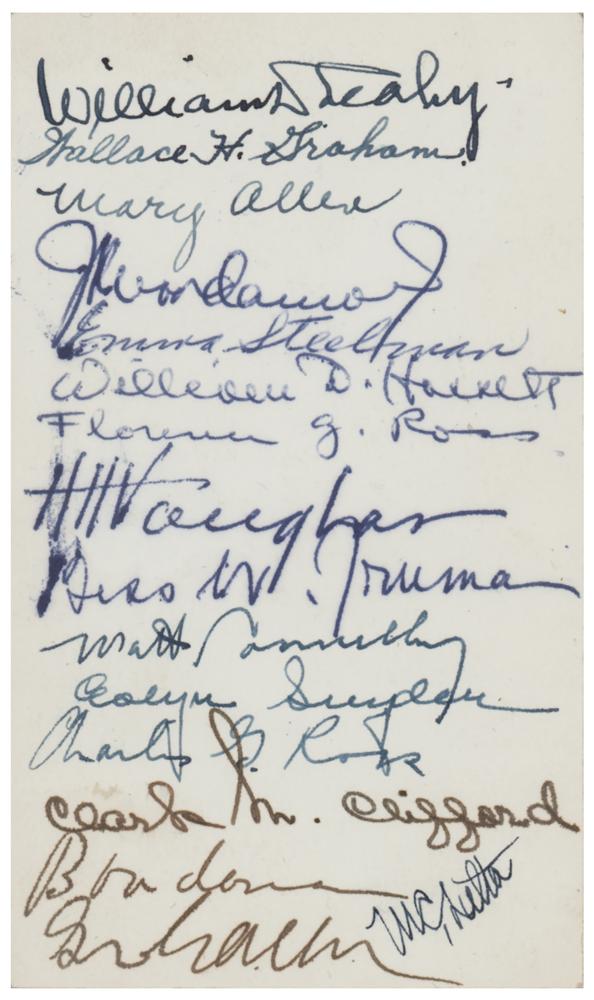 William D Leahy
Wallace H. Graham.
Mary Allen
J K Vardaman Jr
Emma Steelman
William D. Hassett
Florence G. Ross
HHVaughan
Bess W. Truman
Matt Connelly
Evelyn Snyder
Charles G. Ross
Clark M. Clifford
Graham